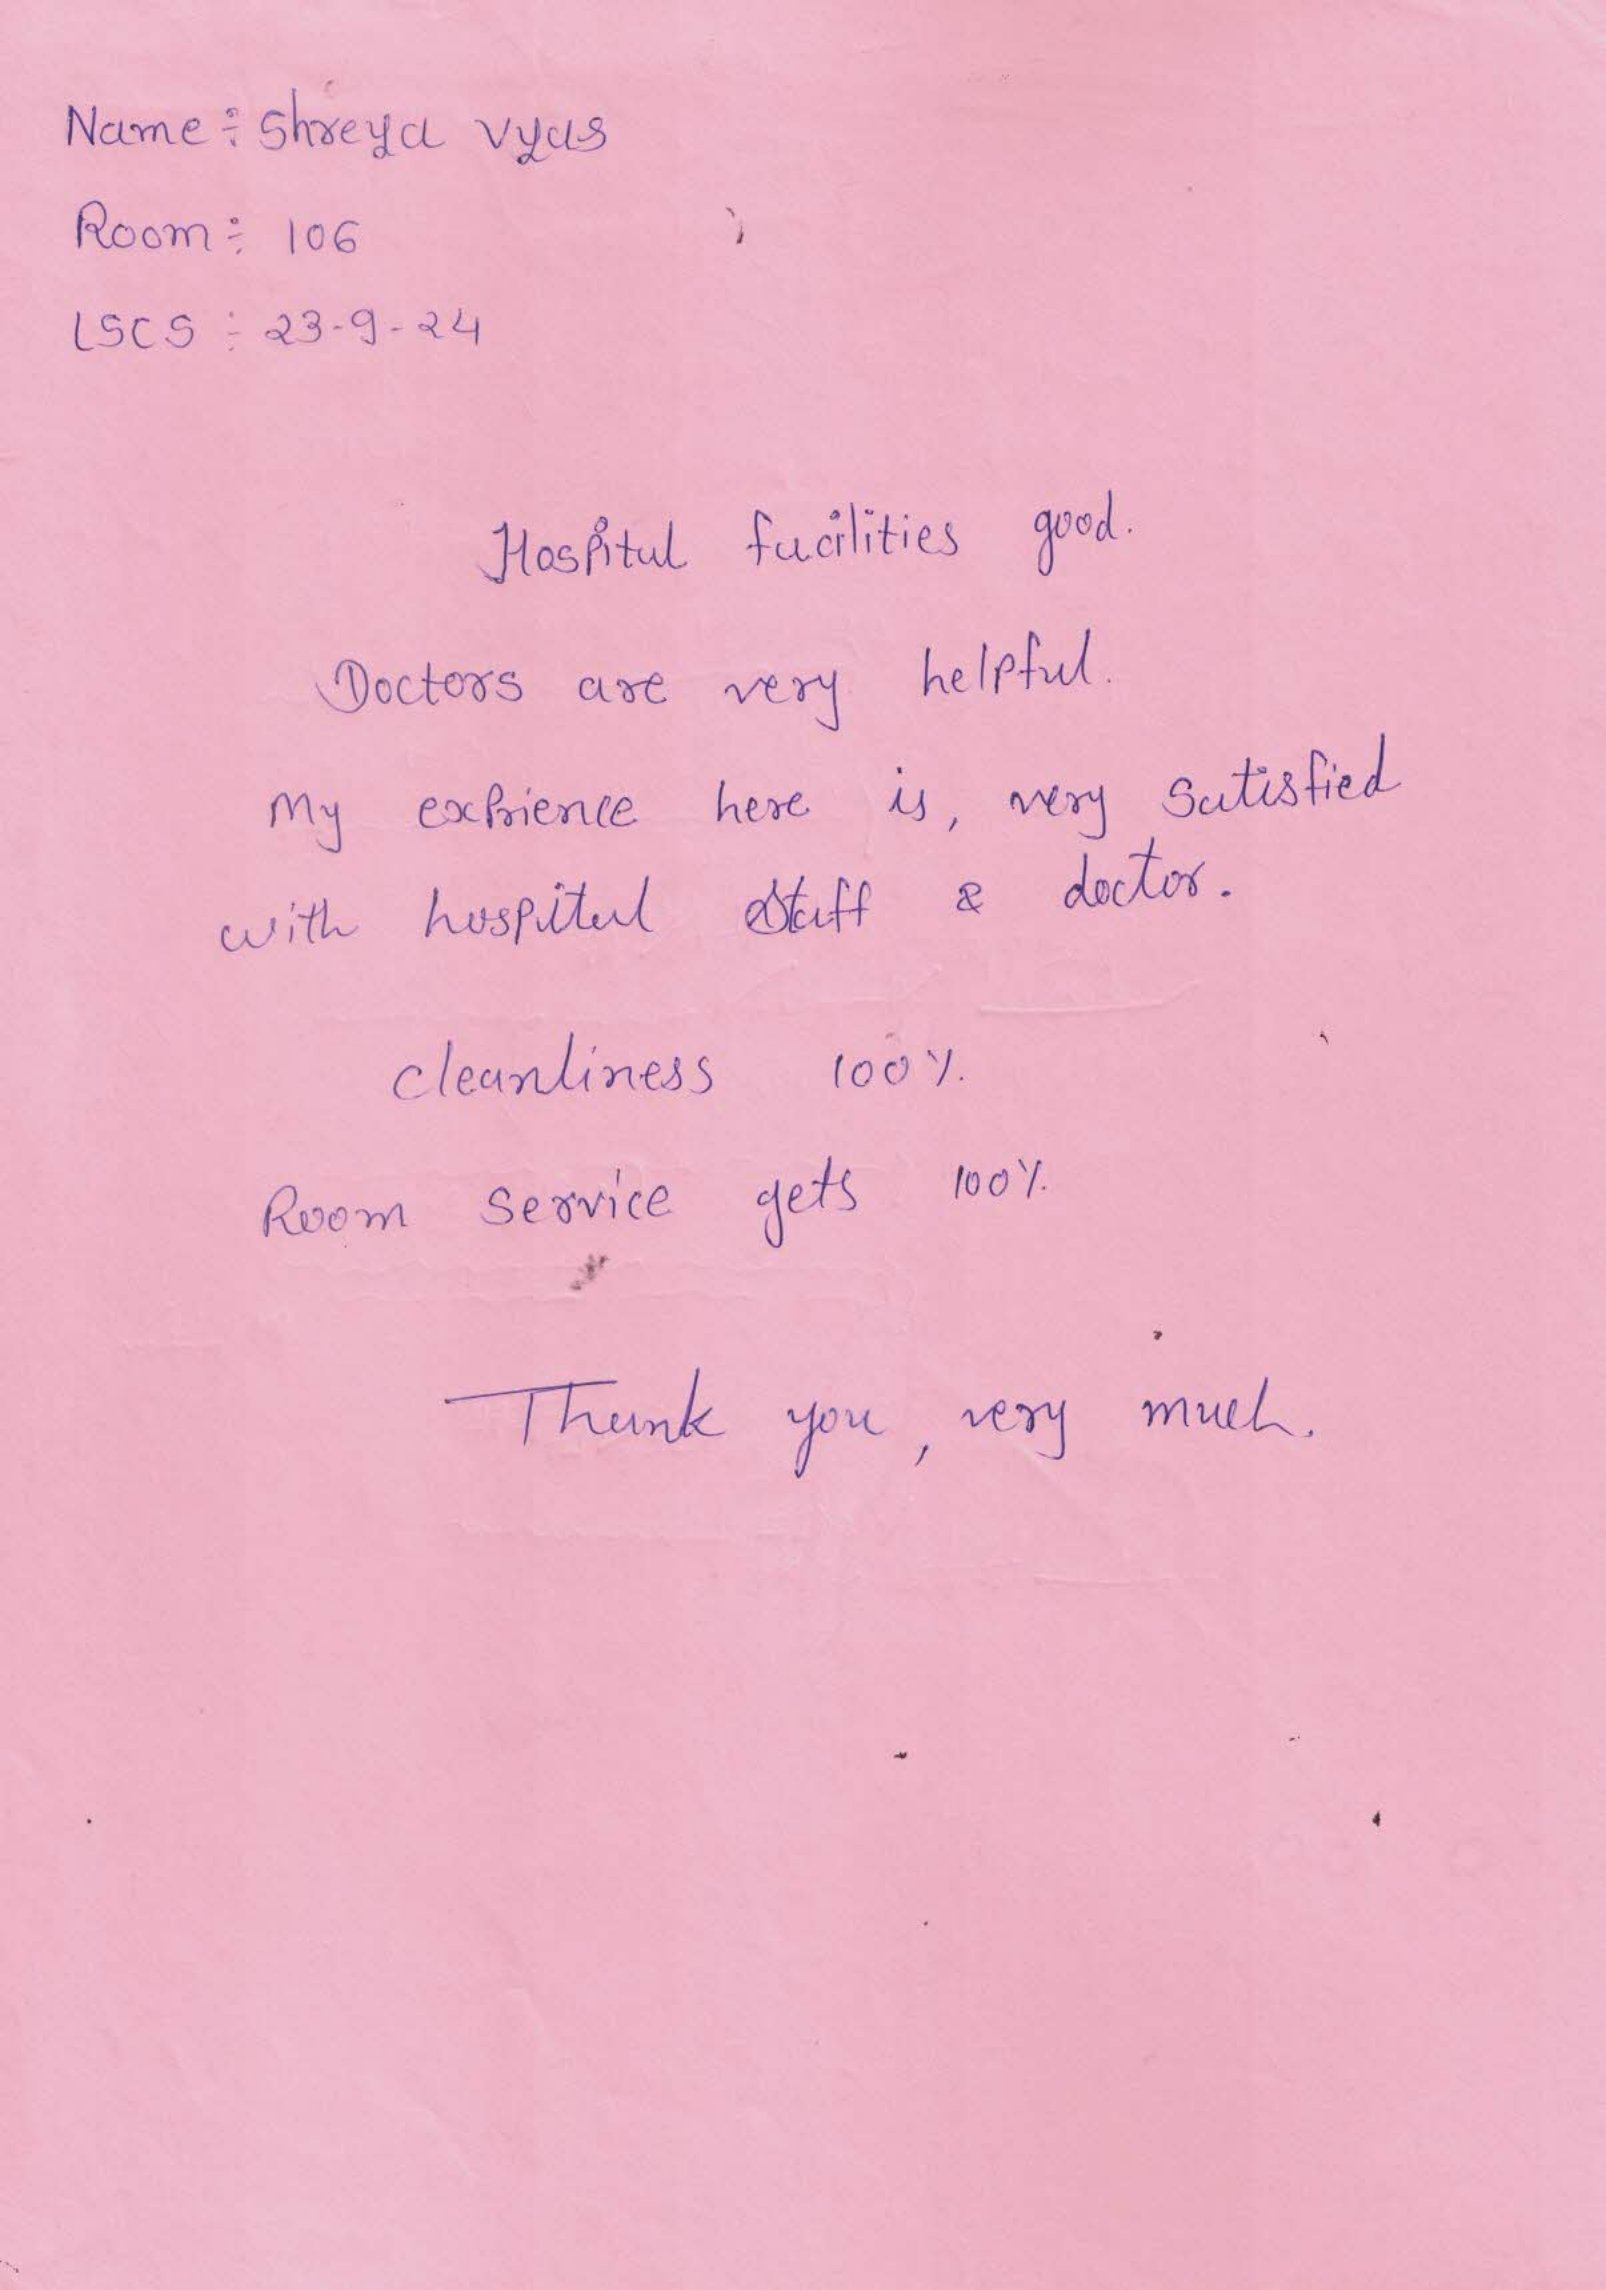 Name : Shreya Vyas
Room : 106
LSCS : 23-9-24
Hospital facilities good.
Doctors are very helpful.
My exprience here is, very satisfied
with hospital staff & doctor.
cleanliness 100%.
Room service gets 100%.
Thank you, very much.